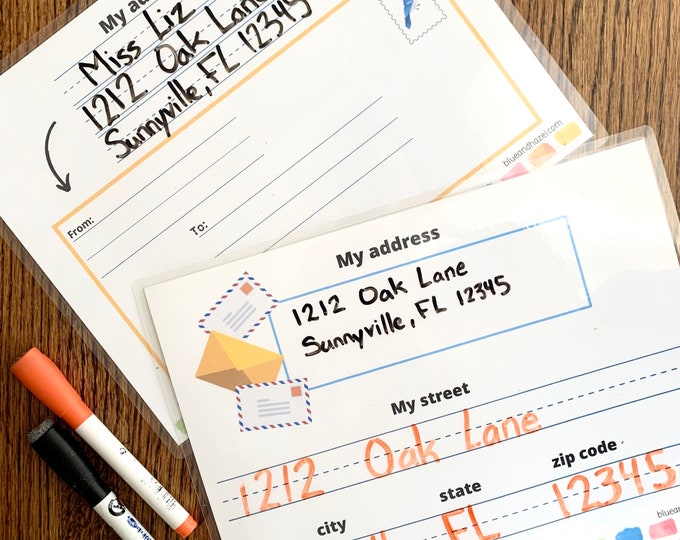 My
Miss Liz
1212 Oak Lane
Sunnyville, FL 12345
From:
To:
blueandhazel.com
My address
1212 Oak Lane
Sunnyville, FL 12345
My street
1212 Oak Lane
city state zip code
FL 12345